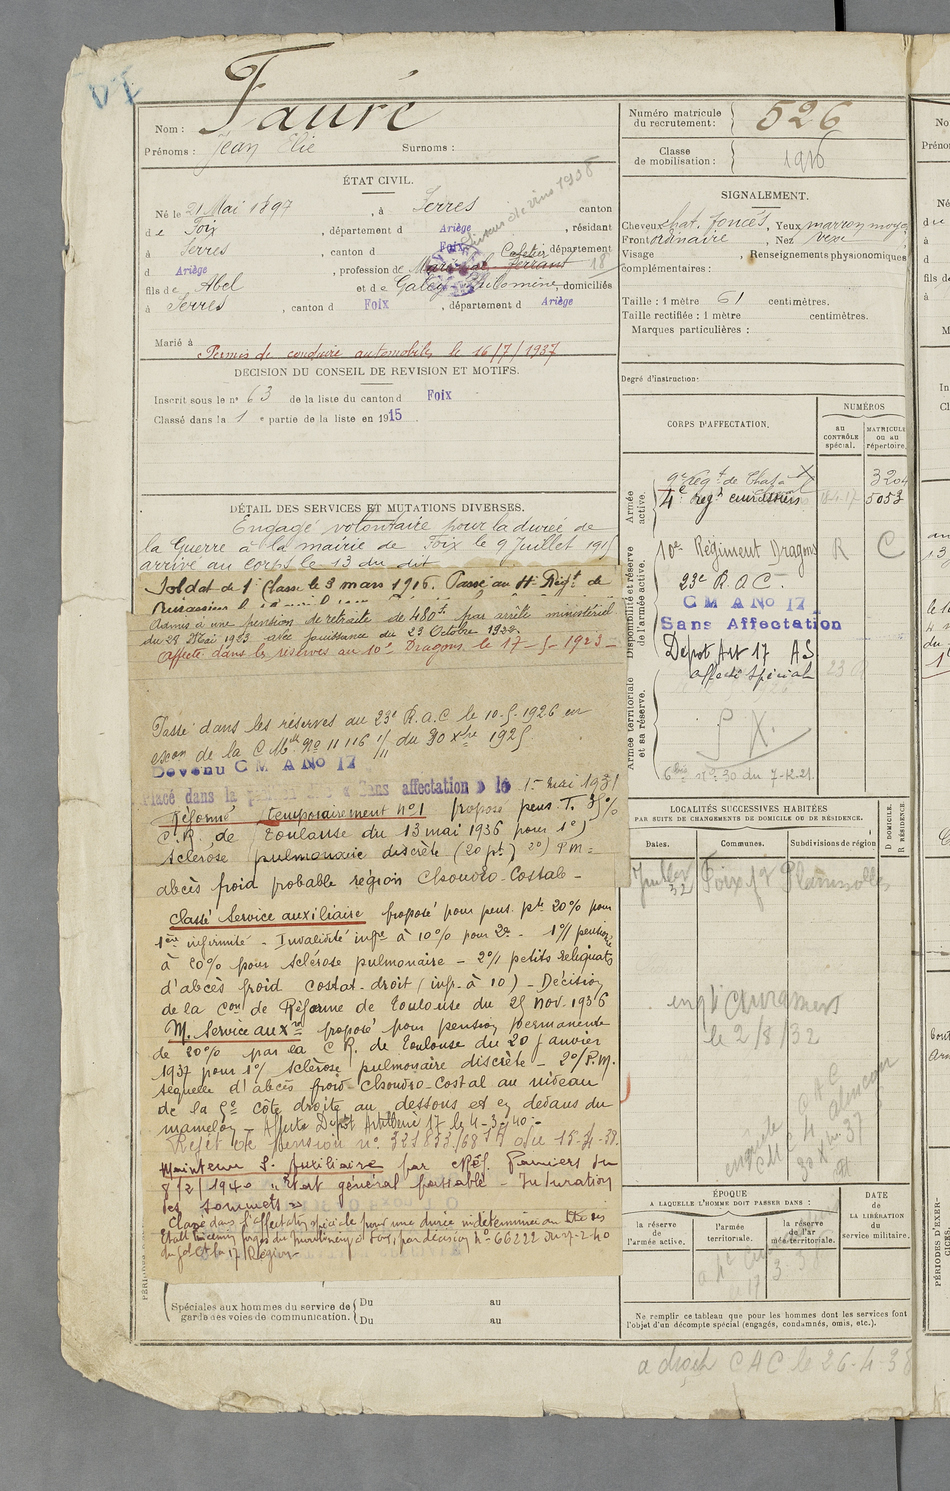 Nom : Fauré
Prénoms : Jean Elie Surnoms :
ÉTAT CIVIL.
Né le 21 Mai 1897, à Serres canton
de Foix, département d Ariège, résidant
à Serres, canton d Foix, département
d Ariège, profession de Cafetier
fils de Abel et de Galey Philomène, domiciliés
à Serres, canton d Foix, département d Ariège
Marié à
Permis de conduire automobiles le 16/7/1937
DECISION DU CONSEIL DE REVISION ET MOTIFS.
Inscrit sous le n° 63 de la liste du canton d Foix
Classé dans la 1 e partie de la liste en 1915
DÉTAIL DES SERVICES ET MUTATIONS DIVERSES.
Engagé volontaire pour la durée de
la Guerre à la mairie de Foix le 9 Juillet 1915
arrivé au corps le 13 du dit
Soldat de 1e Classe le 3 mars 1916. Passé au 4e Régt de
Admis à une pension de retraite de 480f par arrêté ministériel
du 28 Mai 1923 avec jouissance du 23 Octobre 1922
Affecté dans les réserves au 10e Dragons le 17-5-1923
Passé dans les réserves au 23e R.A.C le 10.5.1926 en
exon de la C Mlle No 11116 1/11 du 30 Xbre 1925
Devenu C M A No 17
Placé dans la Sans affectation D le 1er mai 1931
Réformé temporairement n°1 proposé pens. T. 35%
C.R. de Toulouse du 13 mai 1936 pour 1°)
sclérose pulmonaire discrète (20 pt) 2°) P.M =
abcès froid probable région Chondro-Costale -
Classé Service auxiliaire proposé pour pens. pte 20% pour
1ère infirmité - Invalidité infre à 10% pour 2e - 1°/ pension
à 20% pour sclérose pulmonaire - 2°/ petits reliquats
d'abcès froid costat-droit (inf. à 10) - Décision
de la Con de Réforme de Toulouse du 25 nov. 1936
M. Service auxre proposé pour pension permanente
de 20% par la C.R. de Toulouse du 20 janvier
1937 pour 1°/ sclérose pulmonaire discrète - 2°/ P.M.
séquelle d'abcès froid Chondro-Costal au niveau
de la 5e côte droite au dessous et en dedans du
mamelon - Affecté Dépôt Artillerie 17 le 4-3-40.-
Rejet de pension n°
Maintenu S. Auxiliaire par Réf. Pamiers du
8/2/1940 "Etat général passable - Induration
des sommets"
Classé dans l'affectation spéciale pour une durée indéterminée au titre des
par décision n° 66222 du
17e Région
Spéciales aux hommes du service de garde des voies de communication. Du au
Du au
Numéro matricule du recrutement : 526
Classe de mobilisation : 1916
SIGNALEMENT.
Cheveux chat. foncés, Yeux marron moyen
Front ordinaire, Nez vexe
Visage , Renseignements physionomiques
complémentaires :
Taille : 1 mètre 61 centimètres.
Taille rectifiée : 1 mètre centimètres.
Marques particulières :
Degré d'instruction :
CORPS D'AFFECTATION.
NUMÉROS
au CONTRÔLE spécial.
MATRICULE ou au répertoire.
Armée active.
9e Régt de Chass. à 3204
4e Régt cuirassiers 5053
Disponibilité et réserve de l'armée active.
10e Régiment Dragons R C
23e R.A.C.
C M A No 17
Sans Affectation
Dépot Art 17 AS
affecté spécial
Armée territoriale et sa réserve.
LOCALITÉS SUCCESSIVES HABITÉES
PAR SUITE DE CHANGEMENTS DE DOMICILE OU DE RÉSIDENCE.
Dates. Communes. Subdivisions de région
D DOMICILE. R RÉSIDENCE
Juillet 32 Foix
le 2/8/32
ÉPOQUE
A LAQUELLE L'HOMME DOIT PASSER DANS :
la réserve de l'armée active.
l'armée territoriale.
la réserve de l'armée territoriale.
DATE DE LA LIBÉRATION du service militaire.
Ne remplir ce tableau que pour les hommes dont les services font
l'objet d'un décompte spécial (engagés, condamnés, omis, etc.).
CAC le 26-4-38